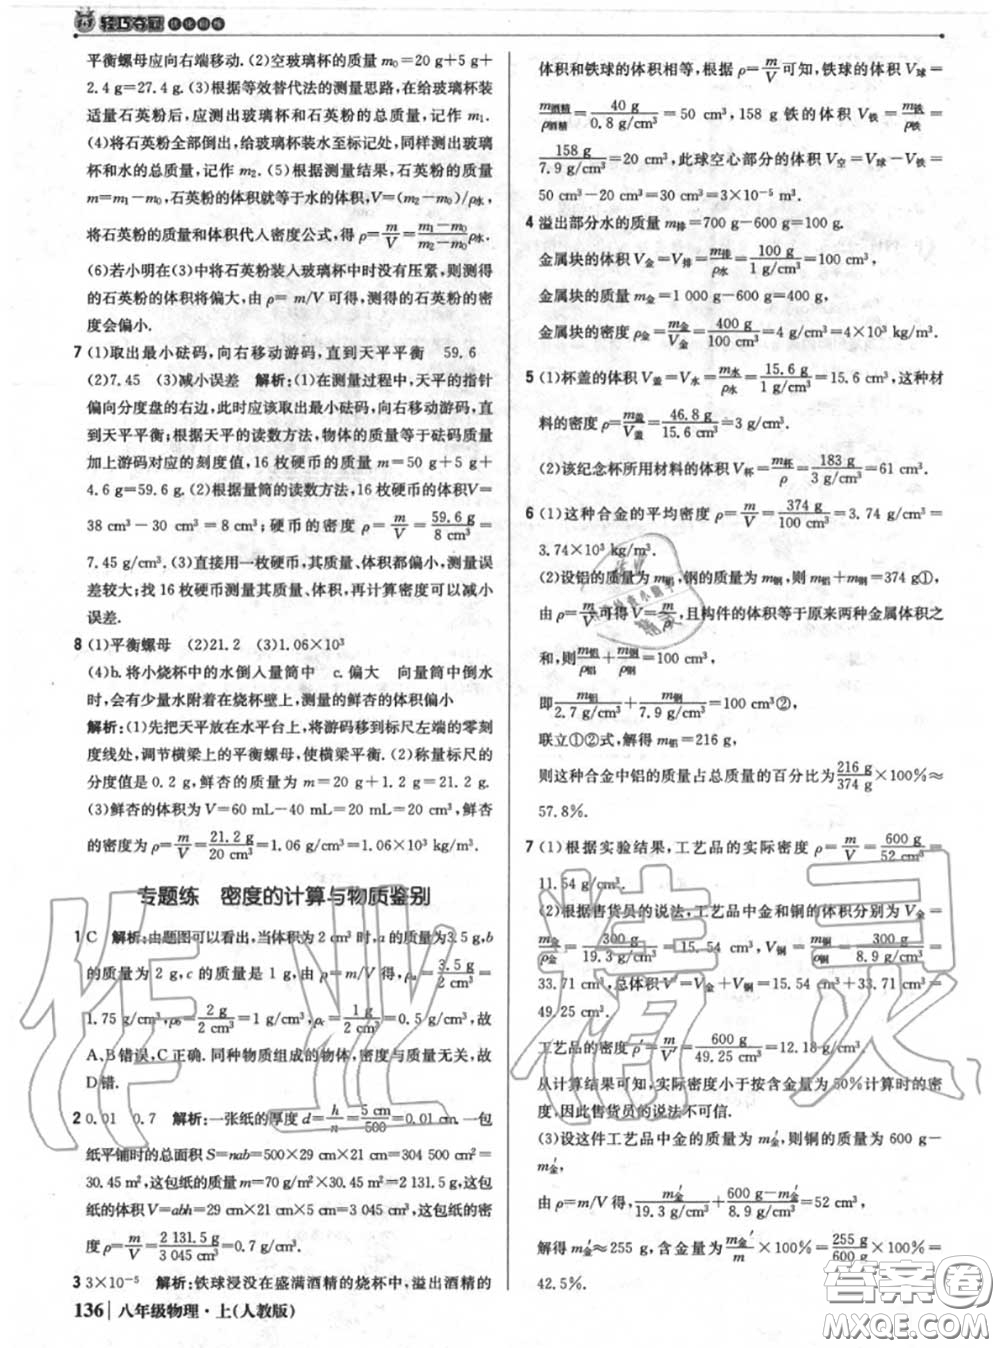 轻巧夺冠 优化训练
平衡螺母应向右端移动. (2)空玻璃杯的质量 m₀=20 g+5 g+
2.4 g=27.4 g. (3)根据等效替代法的测量思路,在给玻璃杯装
适量石英粉后,应测出玻璃杯和石英粉的总质量,记作 m₁.
(4)将石英粉全部倒出,给玻璃杯装水至标记处,同样测出玻璃
杯和水的总质量,记作 m₂. (5)根据测量结果,石英粉的质量
m=m₁-m₀,石英粉的体积就等于水的体积,V=(m₂-m₀)/ρ水,
将石英粉的质量和体积代人密度公式,得 ρ=m/V=(m₁-m₀)/(m₂-m₀)ρ水.
(6)若小明在(3)中将石英粉装入玻璃杯中时没有压紧,则测得
的石英粉的体积将偏大,由 ρ= m/V 可得,测得的石英粉的密
度会偏小.
7 (1)取出最小砝码,向右移动游码,直到天平平衡 59.6
(2)7.45 (3)减小误差 解析:(1)在测量过程中,天平的指针
偏向分度盘的右边,此时应该取出最小砝码,向右移动游码,直
到天平平衡;根据天平的读数方法,物体的质量等于砝码质量
加上游码对应的刻度值,16 枚硬币的质量 m=50 g+5 g+
4.6 g=59.6 g. (2)根据量筒的读数方法,16 枚硬币的体积V=
38 cm³-30 cm³=8 cm³;硬币的密度 ρ=m/V=59.6 g/8 cm³=
7.45 g/cm³. (3)直接用一枚硬币,其质量、体积都偏小,测量误
差较大;找 16 枚硬币测量其质量、体积,再计算密度可以减小
误差.
8 (1)平衡螺母 (2)21.2 (3)1.06×10³
(4)b. 将小烧杯中的水倒人量筒中 c. 偏大 向量筒中倒水
时,会有少量水附着在烧杯壁上,测量的鲜杏的体积偏小
解析:(1)先把天平放在水平台上,将游码移到标尺左端的零刻
度线处,调节横梁上的平衡螺母,使横梁平衡. (2)称量标尺的
分度值是 0.2 g,鲜杏的质量为 m=20 g+1.2 g=21.2 g.
(3)鲜杏的体积为 V=60 mL-40 mL=20 mL=20 cm³,鲜杏
的密度为 ρ=m/V=21.2 g/20 cm³=1.06 g/cm³=1.06×10³ kg/m³.
专题练 密度的计算与物质鉴别
1 C 解析:由题图可以看出,当体积为 2 cm³ 时,a 的质量为3.5 g,b
的质量为 2 g,c 的质量是 1 g,则由 ρ=m/V 可得 ρa=3.5 g/2 cm³=
1.75 g/cm³,ρb=2 g/2 cm³=1 g/cm³,ρc=1 g/2 cm³=0.5 g/cm³,故
A、B错误,C正确. 同种物质组成的物体,密度与质量无关,故
D错.
2 0.01 0.7 解析:一张纸的厚度 d=h/n=5 cm/500=0.01 cm,一包
纸平铺时的总面积 S=nab=500×29 cm×21 cm=304 500 cm²=
30.45 m²,这包纸的质量 m=70 g/m²×30.45 m²=2 131.5 g,这包
纸的体积为 V=abh=29 cm×21 cm×5 cm=3 045 cm³,这包纸的密
度 ρ=m/V=2 131.5 g/3 045 cm³=0.7 g/cm³.
3 3×10⁻⁵ 解析:铁球浸没在盛满酒精的烧杯中,溢出酒精的
136 八年级物理·上(人教版)
体积和铁球的体积相等,根据 ρ=m/V 可知,铁球的体积 V球=
m酒精/ρ酒精=40 g/0.8 g/cm³=50 cm³,158 g 铁的体积 V铁=m铁/ρ铁=
158 g/7.9 g/cm³=20 cm³,此球空心部分的体积 V空=V球-V铁=
50 cm³-20 cm³=30 cm³=3×10⁻⁵ m³.
4 溢出部分水的质量 m排=700 g-600 g=100 g.
金属块的体积 V金=V排=m排/ρ水=100 g/1 g/cm³=100 cm³,
金属块的质量 m金=1 000 g-600 g=400 g,
金属块的密度 ρ金=m金/V金=400 g/100 cm³=4 g/cm³=4×10³ kg/m³.
5 (1)杯盖的体积 V盖=V水=m水/ρ水=15.6 g/1 g/cm³=15.6 cm³,这种材
料的密度 ρ=m盖/V盖=46.8 g/15.6 cm³=3 g/cm³.
(2)该纪念杯所用材料的体积 V杯=m杯/ρ=183 g/3 g/cm³=61 cm³.
6 (1)这种合金的平均密度 ρ=m/V=374 g/100 cm³=3.74 g/cm³=
3.74×10³ kg/m³.
(2)设铝的质量为 m铝,钢的质量为 m钢,则 m铝+m钢=374 g①,
由 ρ=m/V可得V=m/ρ,且构件的体积等于原来两种金属体积之
和,则m铝/ρ铝+m钢/ρ钢=100 cm³,
即m铝/2.7 g/cm³+m钢/7.9 g/cm³=100 cm³②,
联立①②式,解得 m铝=216 g,
则这种合金中铝的质量占总质量的百分比为216 g/374 g×100%≈
57.8%.
7 (1)根据实验结果,工艺品的实际密度 ρ=m/V=600 g/52 cm³=
11.54 g/cm³.
(2)根据售货员的说法,工艺品中金和铜的体积分别为 V金=
m金/ρ金=300 g/19.3 g/cm³=15.54 cm³,V铜=m铜/ρ铜=300 g/8.9 g/cm³=
33.71 cm³,总体积 V=V金+V铜=15.54 cm³+33.71 cm³=
49.25 cm³.
工艺品的密度 ρ′=m/V′=600 g/49.25 cm³=12.18 g/cm³.
从计算结果可知,实际密度小于按含金量为 50%计算时的密
度,因此售货员的说法不可信.
(3)设这件工艺品中金的质量为 m′金,则铜的质量为 600 g-
m′金,
由 ρ=m/V 得,m′金/19.3 g/cm³+600 g-m′金/8.9 g/cm³=52 cm³,
解得 m′金≈255 g,含金量为m′金/m×100%=255 g/600 g×100%=
42.5%.
作业精灵
答案圈
MXQE.COM